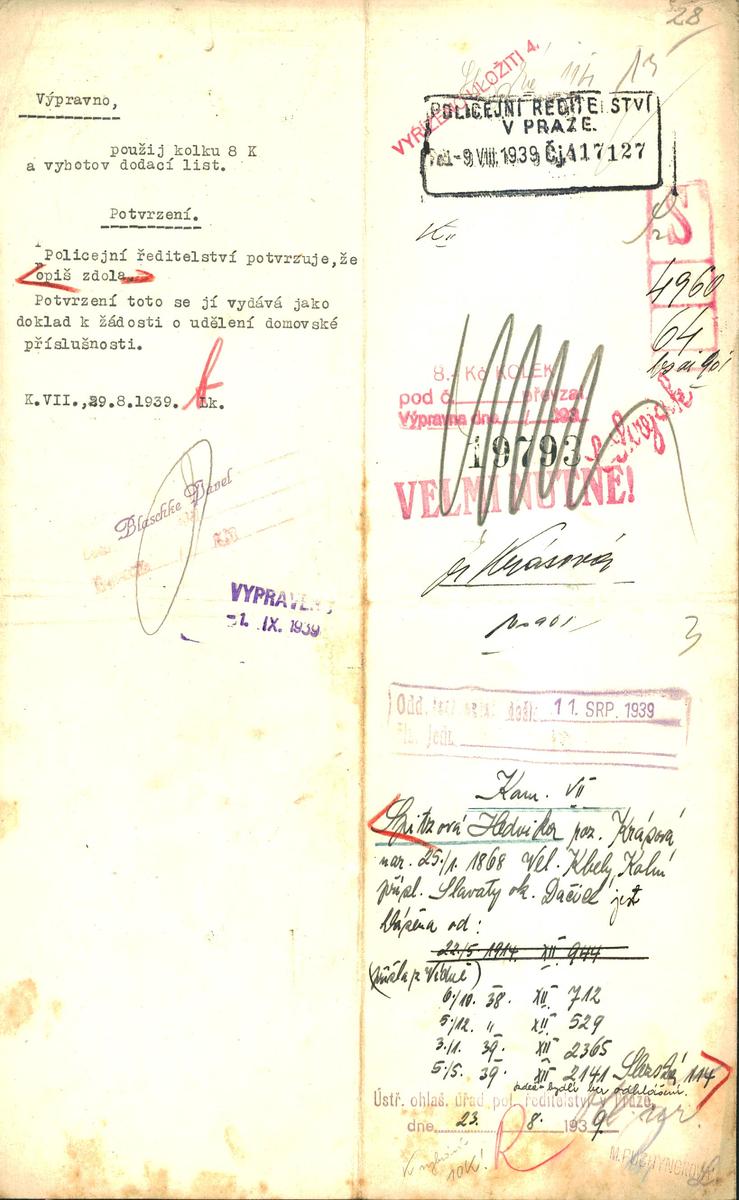 Výpravno,
použij kolku 8 K
a vybotov dodací list.
Potvrzení.
Policejní ředitelství potvrzuje,že
opiš zdola.
Potvrzení toto se jí vydává jako
doklad k žádosti o udělení domovské
příslušnosti.
K.VII.,29.8.1939. Lk.
Blaschke Pavel
VYPRAVENO
-1. IX. 1939
28
13
ULOŽITI 4.
POLICEJNÍ ŘEDITELSTVÍ
V PRAZE.
-9 VIII.1939 Čj. 417127
S
4960
64
8.- Kč KOLEK
pod č. převzal
Výpravna dne / 193
19793
VELMI NUTNÉ!
Krásová
3
Odd. došlo 11. SRP. 1939
Čís. jedn.
Kom. VII
Spitzová Hedvika roz. Krásová
nar. 25/1. 1868 Vel. Kbely, Kolín
přísl. Slavaty ok. Dačice jest
hlášena od:
22/5. 1914. XII 944
(přišla z Vídně)
6/10. 38. XII 712
5/12. " XII 529
3/1. 39. XII 2365
5/5. 39. XII 2141 Slezská 114
bydlí bez odhlášení.
Ústř. ohlaš. úřad pol. ředitelství v Praze
dne 23. 8. 1939
10K!